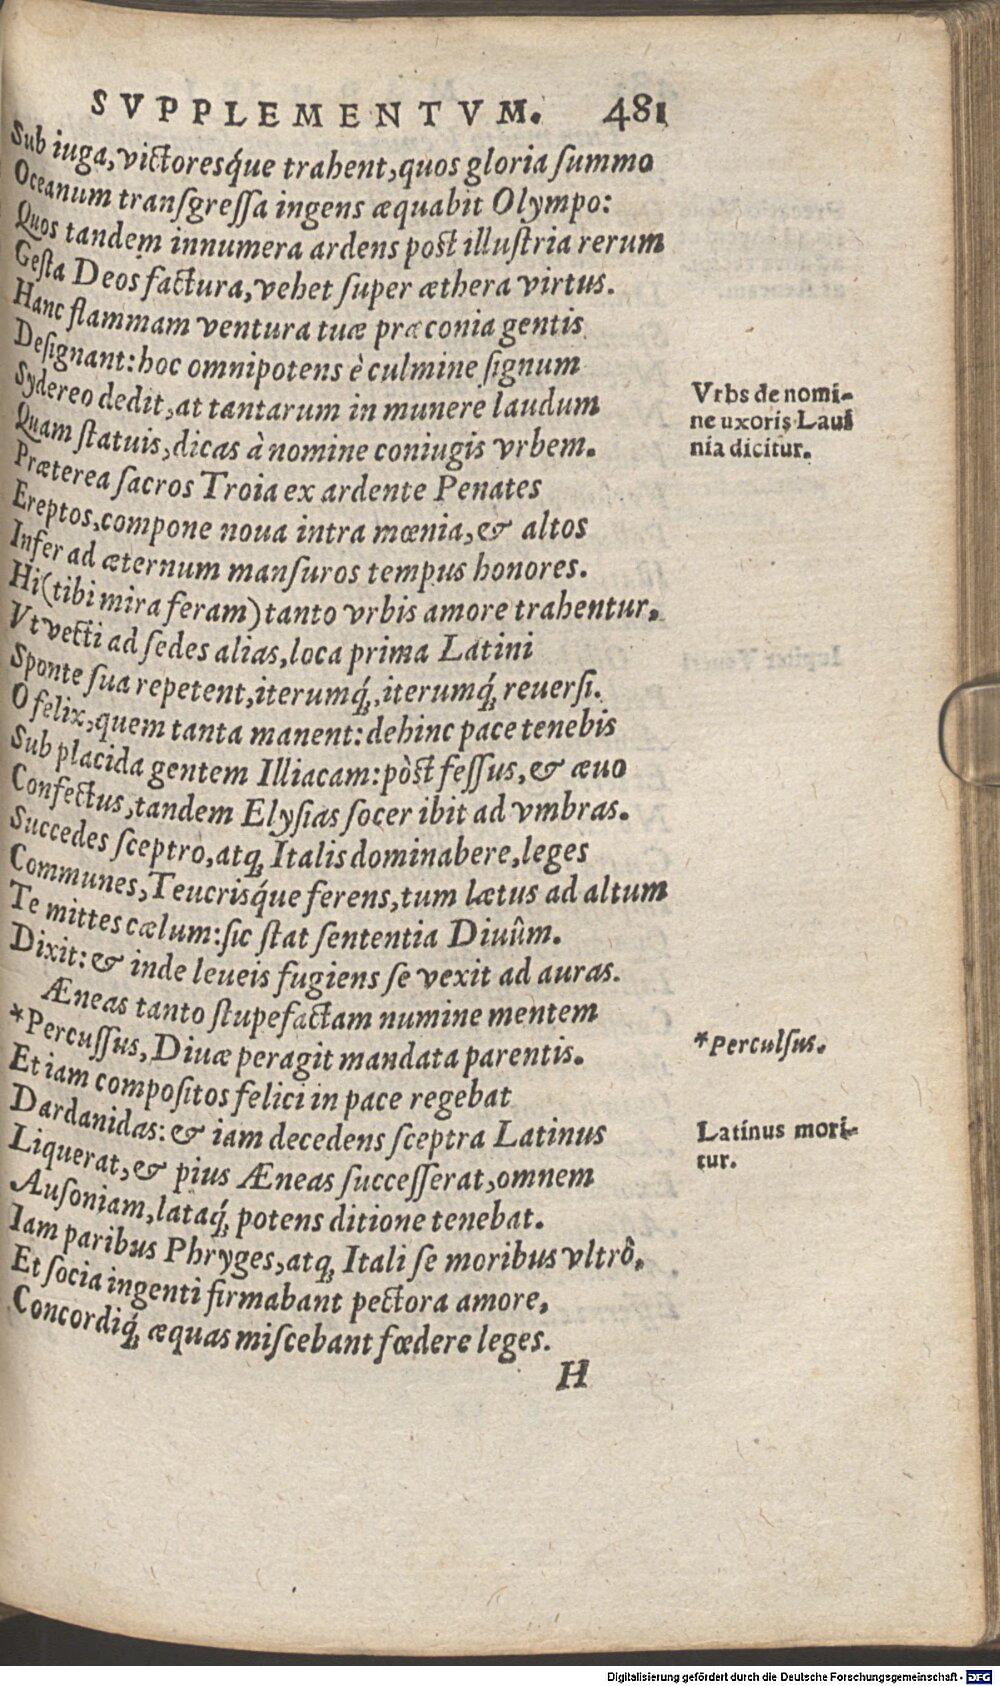 SVPPLEMENTVM. 481
Sub iuga, victoresq́ue trahent, quos gloria ſummo
Oceanum tranſgreſſa ingens æquabit Olympo:
Quos tandem innumera ardens post illuſtria rerum
Geſta Deos factura, vehet ſuper æthera virtus.
Hanc flammam ventura tuæ præconia gentis
Deſignant: hoc omnipotens è culmine ſignum
Sydereo dedit, at tantarum in munere laudum
Quam ſtatuis, dicas à nomine coniugis vrbem.
Vrbs de nomi-
ne uxoris Laui
nia dicitur.
Præterea ſacros Troia ex ardente Penates
Ereptos, compone noua intra mœnia, & altos
Infer ad æternum manſuros tempus honores.
Hi (tibi mira feram) tanto vrbis amore trahentur,
Vt vecti ad ſedes alias, loca prima Latini
Sponte ſua repetent, iterumq́;, iterumq́; reuerſi.
O felix, quem tanta manent: dehinc pace tenebis
Sub placida gentem Illiacam: pòst feſſus, & æuo
Confectus, tandem Elyſias ſocer ibit ad vmbras.
Succedes ſceptro, atq; Italis dominabere, leges
Communes, Teucrisq́ue ferens, tum lætus ad altum
Te mittes cælum: ſic ſtat ſententia Diuûm.
Dixit: & inde leueis fugiens ſe vexit ad auras.
Æneas tanto ſtupefactam numine mentem
*Percuſſus, Diuæ peragit mandata parentis.
*Perculſus.
Et iam compoſitos felici in pace regebat
Dardanidas: & iam decedens ſceptra Latinus
Latinus mori-
tur.
Liquerat, & pius Æneas ſucceſſerat, omnem
Auſoniam, lataq́; potens ditione tenebat.
Iam paribus Phryges, atq; Itali ſe moribus vltrô,
Et ſocia ingenti firmabant pectora amore,
Concordiq́; æquas miſcebant fœdere leges.
H
Digitalisierung gefördert durch die Deutsche Forschungsgemeinschaft - DFG